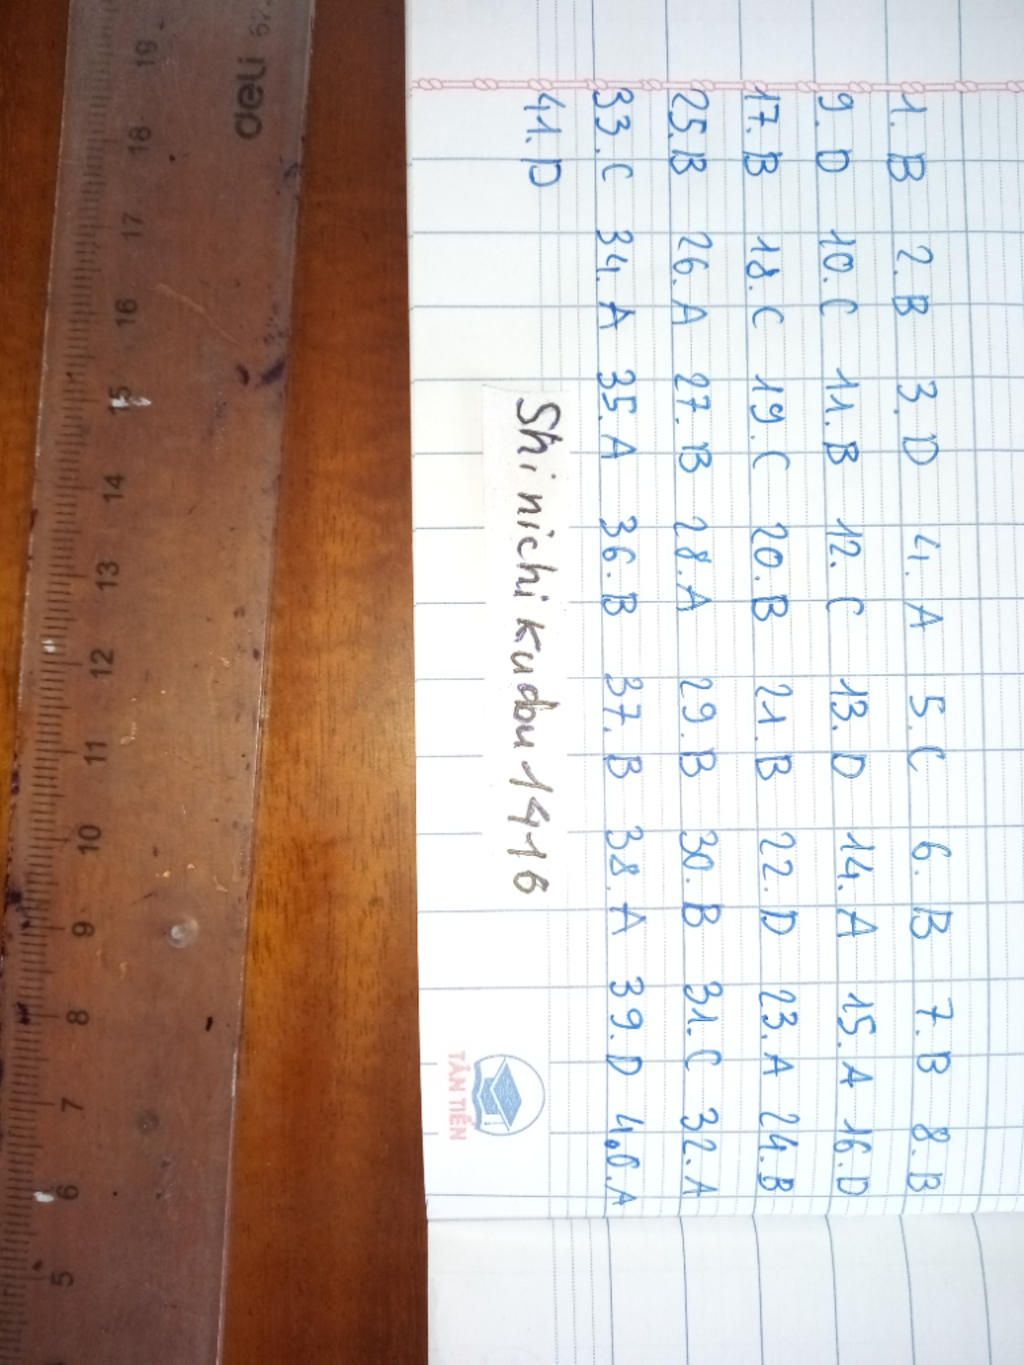 1. B 2. B 3. D 4. A 5. C 6. B 7. B 8. B
9. D 10. C 11. B 12. C 13. D 14. A 15. A 16. D
17. B 18. C 19. C 20. B 21. B 22. D 23. A 24. B
25. B 26. A 27. B 28. A 29. B 30. B 31. C 32. A
33. C 34. A 35. A 36. B 37. B 38. A 39. D 40. A
41. D
Shinichikudou1416
TÂN TIẾN
deli
19 18 17 16 15 14 13 12 11 10 9 8 7 6 5